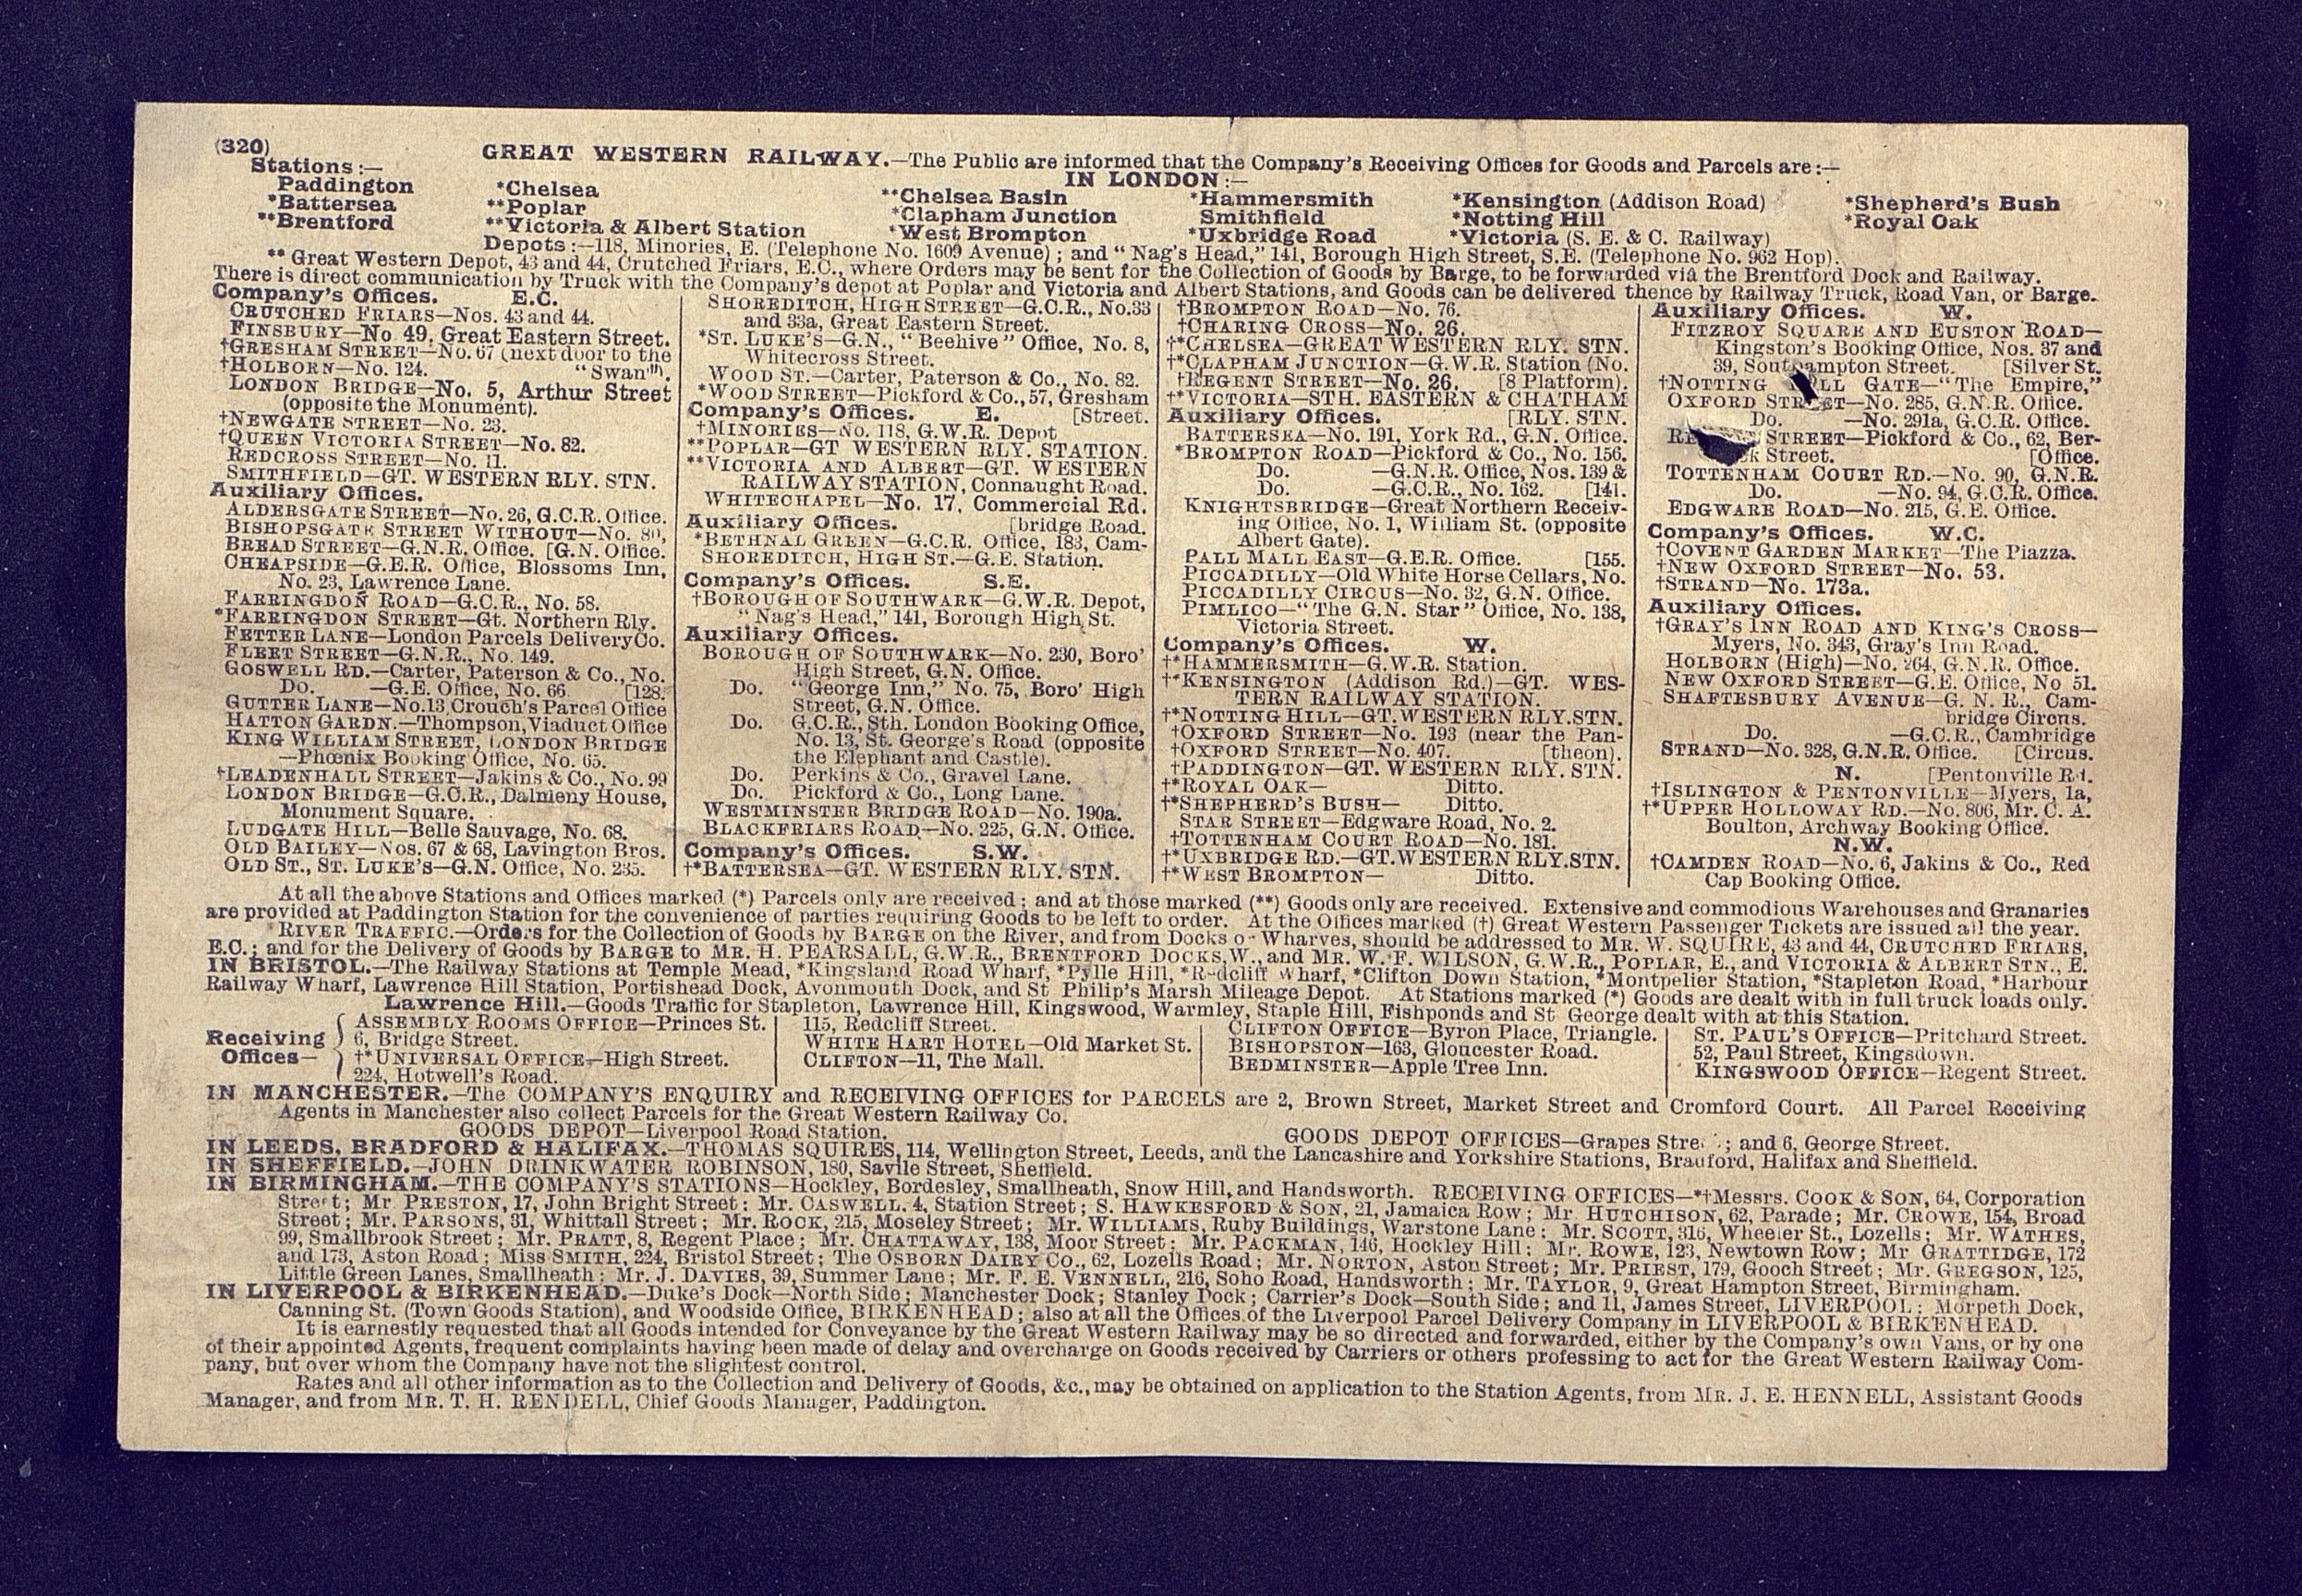 (320)
GREAT WESTERN RAILWAY.—The Public are informed that the Company's Receiving Offices for Goods and Parcels are:—
IN LONDON:—
Stations:—
Paddington *Chelsea **Chelsea Basin *Hammersmith *Kensington (Addison Road) *Shepherd's Bush
*Battersea **Poplar *Clapham Junction Smithfield *Notting Hill *Royal Oak
**Brentford **Victoria & Albert Station *West Brompton *Uxbridge Road *Victoria (S. E. & C. Railway)
Depots:—118, Minories, E. (Telephone No. 1609 Avenue); and "Nag's Head," 141, Borough High Street, S.E. (Telephone No. 962 Hop).
** Great Western Depot, 43 and 44, Crutched Friars, E.C., where Orders may be sent for the Collection of Goods by Barge, to be forwarded viâ the Brentford Dock and Railway.
There is direct communication by Truck with the Company's depot at Poplar and Victoria and Albert Stations, and Goods can be delivered thence by Railway Truck, Road Van, or Barge.
Company's Offices. E.C.
CRUTCHED FRIARS—Nos. 43 and 44.
FINSBURY—No 49, Great Eastern Street.
†GRESHAM STREET—No. 67 (next door to the
†HOLBORN—No. 124. "Swan").
LONDON BRIDGE—No. 5, Arthur Street
(opposite the Monument).
†NEWGATE STREET—No. 23.
†QUEEN VICTORIA STREET—No. 82.
REDCROSS STREET—No. 11.
SMITHFIELD—GT. WESTERN RLY. STN.
Auxiliary Offices.
ALDERSGATE STREET—No. 26, G.C.R. Office.
BISHOPSGATE STREET WITHOUT—No. 80,
BREAD STREET—G.N.R. Office. [G.N. Office.
CHEAPSIDE—G.E.R. Office, Blossoms Inn,
No. 23, Lawrence Lane.
FARRINGDON ROAD—G.C.R., No. 58.
*FARRINGDON STREET—Gt. Northern Rly.
FETTER LANE—London Parcels Delivery Co.
FLEET STREET—G.N.R., No. 149.
GOSWELL RD.—Carter, Paterson & Co., No.
Do. —G.E. Office, No. 66 [128.
GUTTER LANE—No. 13, Crouch's Parcel Office
HATTON GARDN.—Thompson, Viaduct Office
KING WILLIAM STREET, LONDON BRIDGE
—Phœnix Booking Office, No. 65.
†LEADENHALL STREET—Jakins & Co., No. 99
LONDON BRIDGE—G.C.R., Dalmeny House,
Monument Square.
LUDGATE HILL—Belle Sauvage, No. 68.
OLD BAILEY—Nos. 67 & 68, Lavington Bros.
OLD ST., ST. LUKE'S—G.N. Office, No. 235.
SHOREDITCH, HIGH STREET—G.C.R., No. 33
and 33a, Great Eastern Street.
*ST. LUKE'S—G.N., "Beehive" Office, No. 8,
Whitecross Street.
WOOD ST.—Carter, Paterson & Co., No. 82.
*WOOD STREET—Pickford & Co., 57, Gresham
Company's Offices. E. [Street.
†MINORIES—No. 118, G.W.R. Depot
**POPLAR—GT WESTERN RLY. STATION.
**VICTORIA AND ALBERT—GT. WESTERN
RAILWAY STATION, Connaught Road.
WHITECHAPEL—No. 17, Commercial Rd.
Auxiliary Offices. [bridge Road.
*BETHNAL GREEN—G.C.R. Office, 183, Cam-
SHOREDITCH, HIGH ST.—G.E. Station.
Company's Offices. S.E.
†BOROUGH OF SOUTHWARK—G.W.R. Depot,
"Nag's Head," 141, Borough High St.
Auxiliary Offices.
BOROUGH OF SOUTHWARK—No. 230, Boro'
High Street, G.N. Office.
Do. "George Inn," No. 75, Boro' High
Street, G.N. Office.
Do. G.C.R., Sth. London Booking Office,
No. 13, St. George's Road (opposite
the Elephant and Castle).
Do. Perkins & Co., Gravel Lane.
Do. Pickford & Co., Long Lane.
WESTMINSTER BRIDGE ROAD—No. 190a.
BLACKFRIARS ROAD—No. 225, G.N. Office.
Company's Offices. S.W.
†*BATTERSEA—GT. WESTERN RLY. STN.
†BROMPTON ROAD—No. 76.
†CHARING CROSS—No. 26.
†*CHELSEA—GREAT WESTERN RLY. STN.
†*CLAPHAM JUNCTION—G.W.R. Station (No.
†REGENT STREET—No. 26. [8 Platform).
†*VICTORIA—STH. EASTERN & CHATHAM
Auxiliary Offices. [RLY. STN.
BATTERSEA—No. 191, York Rd., G.N. Office.
*BROMPTON ROAD—Pickford & Co., No. 156.
Do. —G.N.R. Office, Nos. 139 &
Do. —G.C.R., No. 162. [141.
KNIGHTSBRIDGE—Great Northern Receiv-
ing Office, No. 1, William St. (opposite
Albert Gate).
PALL MALL EAST—G.E.R. Office. [155.
PICCADILLY—Old White Horse Cellars, No.
PICCADILLY CIRCUS—No. 32, G.N. Office.
PIMLICO—"The G.N. Star" Office, No. 138,
Victoria Street.
Company's Offices. W.
†*HAMMERSMITH—G.W.R. Station.
†*KENSINGTON (Addison Rd.)—GT. WES-
TERN RAILWAY STATION.
†*NOTTING HILL—GT. WESTERN RLY. STN.
†OXFORD STREET—No. 193 (near the Pan-
†OXFORD STREET—No. 407. [theon).
†PADDINGTON—GT. WESTERN RLY. STN.
†*ROYAL OAK— Ditto.
†*SHEPHERD'S BUSH— Ditto.
STAR STREET—Edgware Road, No. 2.
†TOTTENHAM COURT ROAD—No. 181.
†*UXBRIDGE RD.—GT. WESTERN RLY. STN.
†*WEST BROMPTON— Ditto.
Auxiliary Offices. W.
FITZROY SQUARE AND EUSTON ROAD—
Kingston's Booking Office, Nos. 37 and
39, Southampton Street. [Silver St.
†NOTTING HILL GATE—"The Empire,"
OXFORD STREET—No. 285, G.N.R. Office.
Do. —No. 291a, G.C.R. Office.
STREET—Pickford & Co., 62, Ber-
Street. [Office.
TOTTENHAM COURT RD.—No. 90, G.N.R.
Do. —No. 94, G.C.R. Office.
EDGWARE ROAD—No. 215, G.E. Office.
Company's Offices. W.C.
†COVENT GARDEN MARKET—The Piazza.
†NEW OXFORD STREET—No. 53.
†STRAND—No. 173a.
Auxiliary Offices.
†GRAY'S INN ROAD AND KING'S CROSS—
Myers, No. 343, Gray's Inn Road.
HOLBORN (High)—No. 264, G.N.R. Office.
NEW OXFORD STREET—G.E. Office, No 51.
SHAFTESBURY AVENUE—G. N. R., Cam-
bridge Circus.
Do. —G.C.R., Cambridge
STRAND—No. 328, G.N.R. Office. [Circus.
N. [Pentonville Rd.
†ISLINGTON & PENTONVILLE—Myers, 1a,
†*UPPER HOLLOWAY RD.—No. 806, Mr. C. A.
Boulton, Archway Booking Office.
N.W.
†CAMDEN ROAD—No. 6, Jakins & Co., Red
Cap Booking Office.
At all the above Stations and Offices marked (*) Parcels only are received; and at those marked (**) Goods only are received. Extensive and commodious Warehouses and Granaries
are provided at Paddington Station for the convenience of parties requiring Goods to be left to order. At the Offices marked (†) Great Western Passenger Tickets are issued all the year.
RIVER TRAFFIC.—Orders for the Collection of Goods by BARGE on the River, and from Docks or Wharves, should be addressed to MR. W. SQUIRE, 43 and 44, CRUTCHED FRIARS,
E.C.; and for the Delivery of Goods by BARGE to MR. H. PEARSALL, G.W.R., BRENTFORD DOCKS, W., and MR. W. F. WILSON, G.W.R., POPLAR, E., and VICTORIA & ALBERT STN., E.
IN BRISTOL.—The Railway Stations at Temple Mead, *Kingsland Road Wharf, *Pylle Hill, *Redcliff Wharf, *Clifton Down Station, *Montpelier Station, *Stapleton Road, *Harbour
Railway Wharf, Lawrence Hill Station, Portishead Dock, Avonmouth Dock, and St Philip's Marsh Mileage Depot. At Stations marked (*) Goods are dealt with in full truck loads only.
Lawrence Hill.—Goods Traffic for Stapleton, Lawrence Hill, Kingswood, Warmley, Staple Hill, Fishponds and St George dealt with at this Station.
Receiving Offices—
ASSEMBLY ROOMS OFFICE—Princes St.
6, Bridge Street.
†*UNIVERSAL OFFICE—High Street.
224, Hotwell's Road.
115, Redcliff Street.
WHITE HART HOTEL—Old Market St.
CLIFTON—11, The Mall.
CLIFTON OFFICE—Byron Place, Triangle.
BISHOPSTON—163, Gloucester Road.
BEDMINSTER—Apple Tree Inn.
ST. PAUL'S OFFICE—Pritchard Street.
52, Paul Street, Kingsdown.
KINGSWOOD OFFICE—Regent Street.
IN MANCHESTER.—The COMPANY'S ENQUIRY and RECEIVING OFFICES for PARCELS are 2, Brown Street, Market Street and Cromford Court. All Parcel Receiving
Agents in Manchester also collect Parcels for the Great Western Railway Co.
GOODS DEPOT—Liverpool Road Station. GOODS DEPOT OFFICES—Grapes Street; and 6, George Street.
IN LEEDS, BRADFORD & HALIFAX.—THOMAS SQUIRES, 114, Wellington Street, Leeds, and the Lancashire and Yorkshire Stations, Bradford, Halifax and Sheffield.
IN SHEFFIELD.—JOHN DRINKWATER ROBINSON, 180, Savile Street, Sheffield.
IN BIRMINGHAM.—THE COMPANY'S STATIONS—Hockley, Bordesley, Smallheath, Snow Hill, and Handsworth. RECEIVING OFFICES—*†Messrs. COOK & SON, 64, Corporation
Street; Mr. PRESTON, 17, John Bright Street; Mr. CASWELL, 4, Station Street; S. HAWKESFORD & SON, 21, Jamaica Row; Mr. HUTCHISON, 62, Parade; Mr. CROWE, 154, Broad
Street; Mr. PARSONS, 31, Whittall Street; Mr. ROCK, 215, Moseley Street; Mr. WILLIAMS, Ruby Buildings, Warstone Lane; Mr. SCOTT, 316, Wheeler St., Lozells; Mr. WATHES,
99, Smallbrook Street; Mr. PRATT, 8, Regent Place; Mr. CHATTAWAY, 138, Moor Street; Mr. PACKMAN, 146, Hockley Hill; Mr. ROWE, 123, Newtown Row; Mr GRATTIDGE, 172
and 173, Aston Road; Miss SMITH, 224, Bristol Street; The OSBORN DAIRY CO., 62, Lozells Road; Mr. NORTON, Aston Street; Mr. PRIEST, 179, Gooch Street; Mr. GREGSON, 125,
Little Green Lanes, Smallheath; Mr. J. DAVIES, 39, Summer Lane; Mr. F. E. VENNELL, 216, Soho Road, Handsworth; Mr. TAYLOR, 9, Great Hampton Street, Birmingham.
IN LIVERPOOL & BIRKENHEAD.—Duke's Dock—North Side; Manchester Dock; Stanley Dock; Carrier's Dock—South Side; and 11, James Street, LIVERPOOL; Morpeth Dock,
Canning St. (Town Goods Station), and Woodside Office, BIRKENHEAD; also at all the Offices of the Liverpool Parcel Delivery Company in LIVERPOOL & BIRKENHEAD.
It is earnestly requested that all Goods intended for Conveyance by the Great Western Railway may be so directed and forwarded, either by the Company's own Vans, or by one
of their appointed Agents, frequent complaints having been made of delay and overcharge on Goods received by Carriers or others professing to act for the Great Western Railway Com-
pany, but over whom the Company have not the slightest control.
Rates and all other information as to the Collection and Delivery of Goods, &c., may be obtained on application to the Station Agents, from MR. J. E. HENNELL, Assistant Goods
Manager, and from MR. T. H. RENDELL, Chief Goods Manager, Paddington.